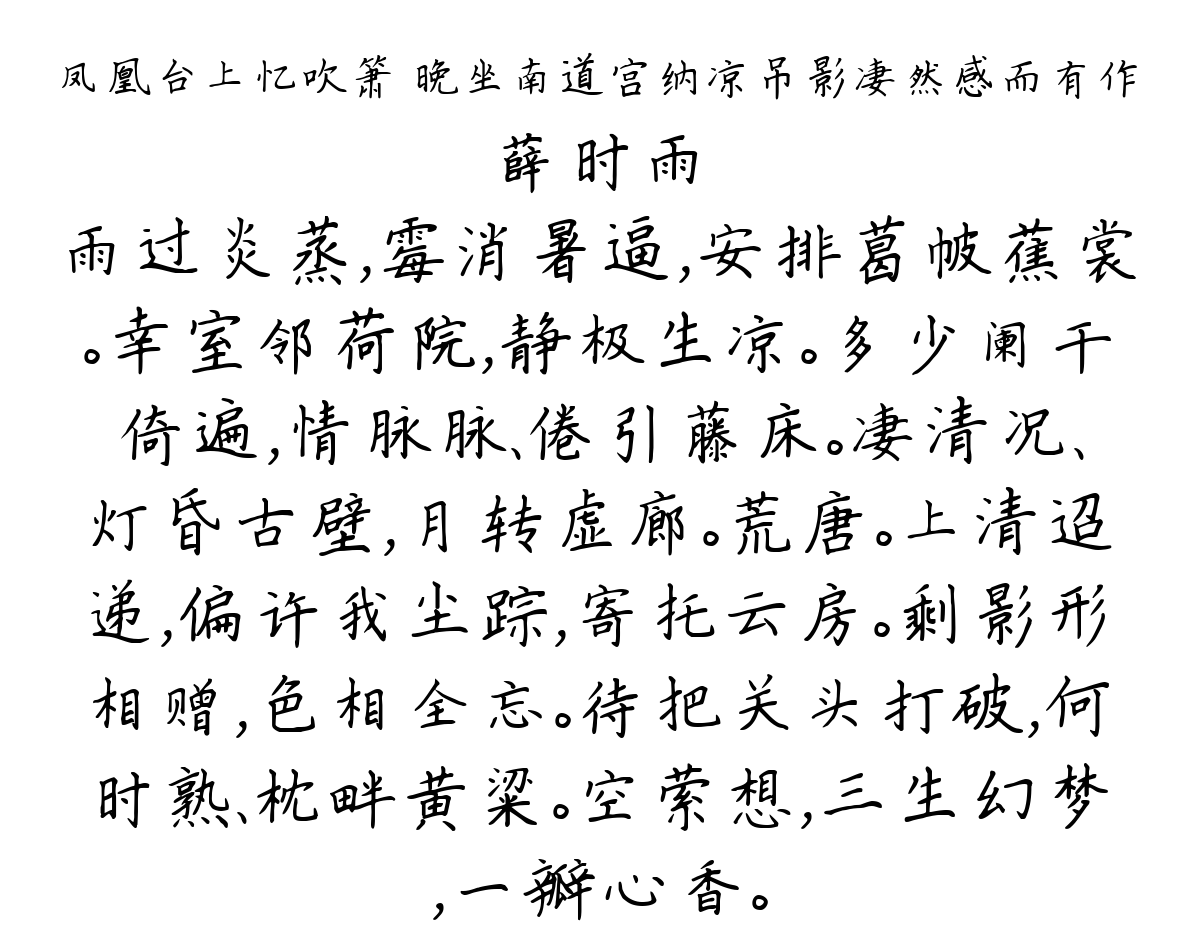 凤凰台上忆吹箫 晚坐南道宫纳凉吊影凄然感而有作
薛时雨
雨过炎蒸,霉消暑逼,安排葛帔蕉裳
。幸室邻荷院,静极生凉。多少阑干
倚遍,情脉脉、倦引藤床。凄清况、
灯昏古壁,月转虚廊。荒唐。上清迢
递,偏许我尘踪,寄托云房。剩影形
相赠,色相全忘。待把关头打破,何
时熟、枕畔黄粱。空萦想,三生幻梦
,一瓣心香。